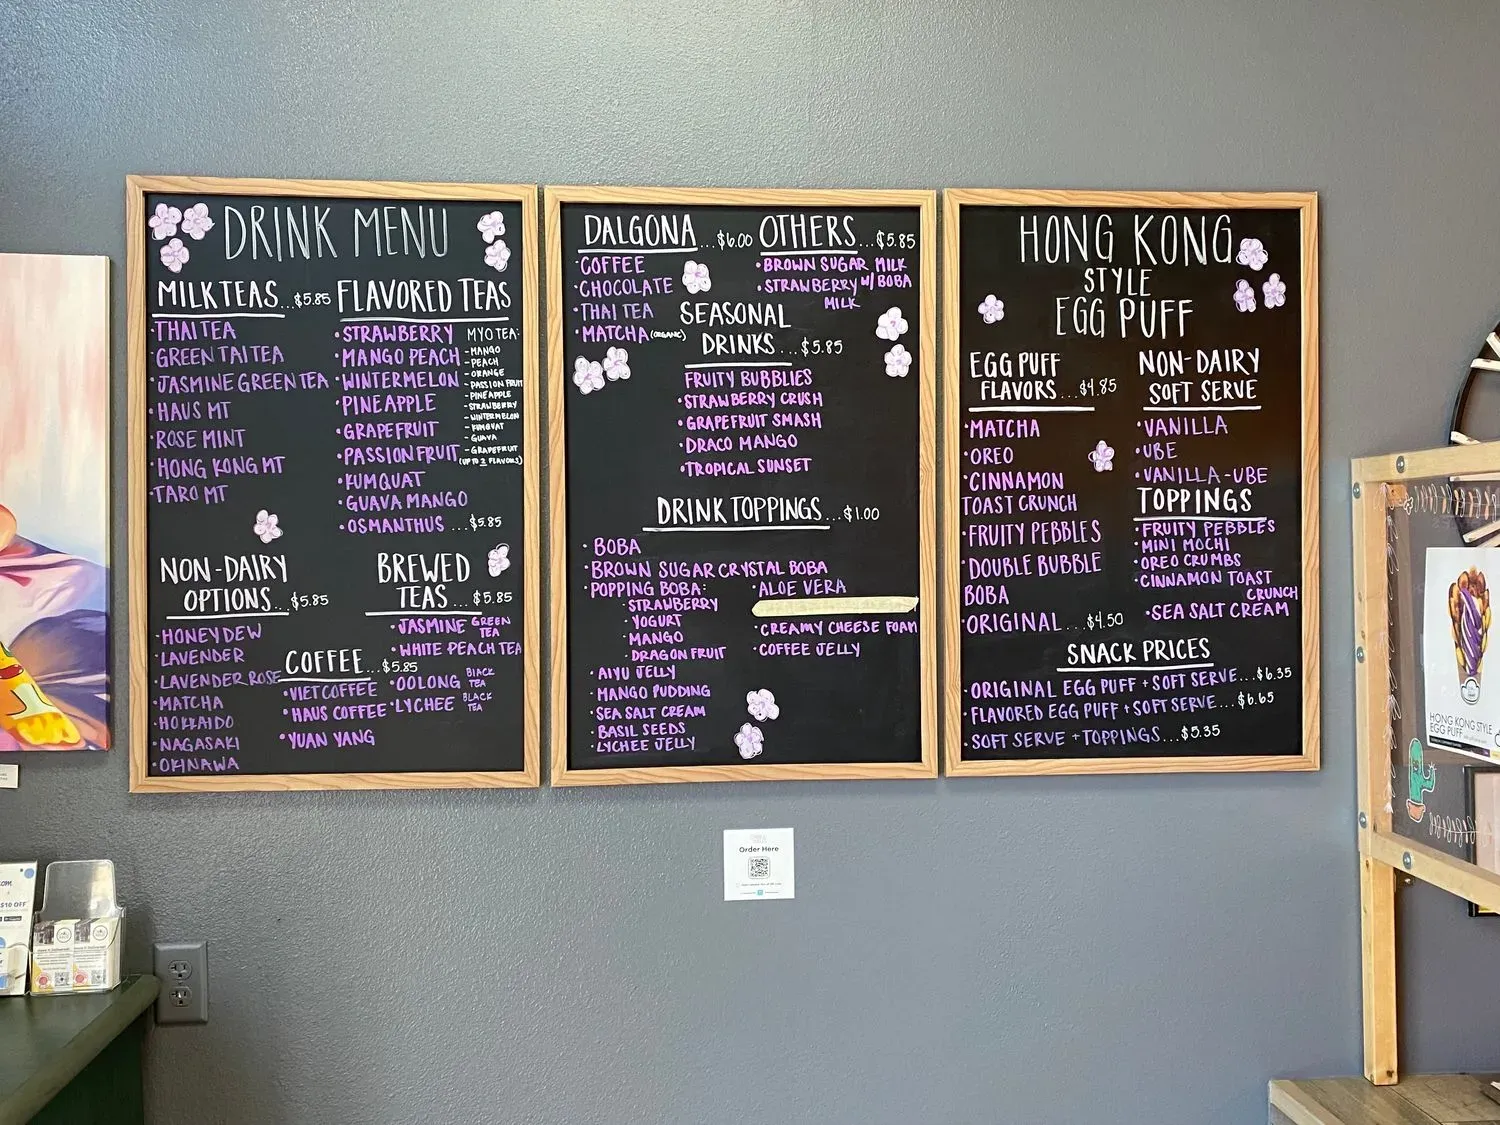 DRINK MENU
MILK TEAS...$5.85
·THAI TEA
·GREEN TAI TEA
·JASMINE GREEN TEA
·HAUS MT
·ROSE MINT
·HONG KONG MT
·TARO MT
FLAVORED TEAS
·STRAWBERRY
·MANGO PEACH
·WINTERMELON
·PINEAPPLE
·GRAPEFRUIT
·PASSION FRUIT
·KUMQUAT
·GUAVA MANGO
·OSMANTHUS ...$5.85
MYO TEA:
-MANGO
-PEACH
-ORANGE
-PASSION FRUIT
-PINEAPPLE
-STRAWBERRY
-WINTERMELON
-KUMQUAT
-GUAVA
-GRAPEFRUIT
(UP TO 2 FLAVORS)
NON-DAIRY
OPTIONS...$5.85
·HONEYDEW
·LAVENDER
·LAVENDER ROSE
·MATCHA
·HOKKAIDO
·NAGASAKI
·OKINAWA
COFFEE...$5.85
·VIET COFFEE
·HAUS COFFEE
·YUAN YANG
BREWED
TEAS...$5.85
·JASMINE GREEN
TEA
·WHITE PEACH TEA
·OOLONG BLACK
TEA
·LYCHEE BLACK
TEA
DALGONA...$6.00
·COFFEE
·CHOCOLATE
·THAI TEA
·MATCHA (ORGANIC)
OTHERS...$5.85
·BROWN SUGAR MILK
W/ BOBA
·STRAWBERRY
MILK
SEASONAL
DRINKS...$5.85
FRUITY BUBBLIES
·STRAWBERRY CRUSH
·GRAPEFRUIT SMASH
·DRACO MANGO
·TROPICAL SUNSET
DRINK TOPPINGS...$1.00
·BOBA
·BROWN SUGAR CRYSTAL BOBA
·POPPING BOBA:
·STRAWBERRY
·YOGURT
·MANGO
·DRAGON FRUIT
·AIYU JELLY
·MANGO PUDDING
·SEA SALT CREAM
·BASIL SEEDS
·LYCHEE JELLY
·ALOE VERA
·CREAMY CHEESE FOAM
·COFFEE JELLY
HONG KONG
STYLE
EGG PUFF
EGG PUFF
FLAVORS...$4.85
·MATCHA
·OREO
·CINNAMON
TOAST CRUNCH
·FRUITY PEBBLES
·DOUBLE BUBBLE
BOBA
·ORIGINAL...$4.50
NON-DAIRY
SOFT SERVE
·VANILLA
·UBE
·VANILLA-UBE
TOPPINGS
·FRUITY PEBBLES
·MINI MOCHI
·OREO CRUMBS
·CINNAMON TOAST
CRUNCH
·SEA SALT CREAM
SNACK PRICES
·ORIGINAL EGG PUFF + SOFT SERVE...$6.35
·FLAVORED EGG PUFF + SOFT SERVE...$6.65
·SOFT SERVE + TOPPINGS...$5.35
Order Here
HONG KONG STYLE
EGG PUFF
$10 OFF